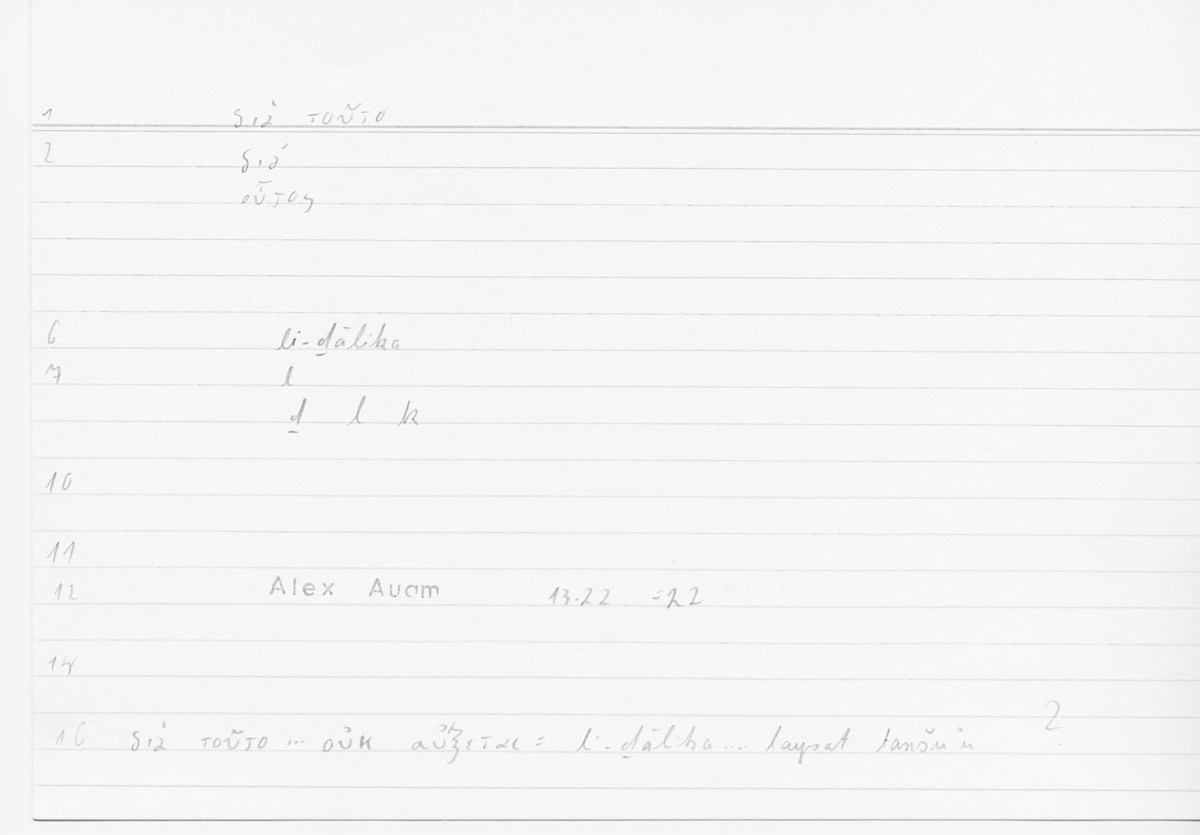 1 διὰ τοῦτο
2 διά
οὗτος
6 li-ḏālika
7 l
ḏ l k
10
11
12 Alex An am 13.22 = 22
14
2
16 διὰ τοῦτο ... οὐκ αὔξεται = li-ḏālika ... laysat